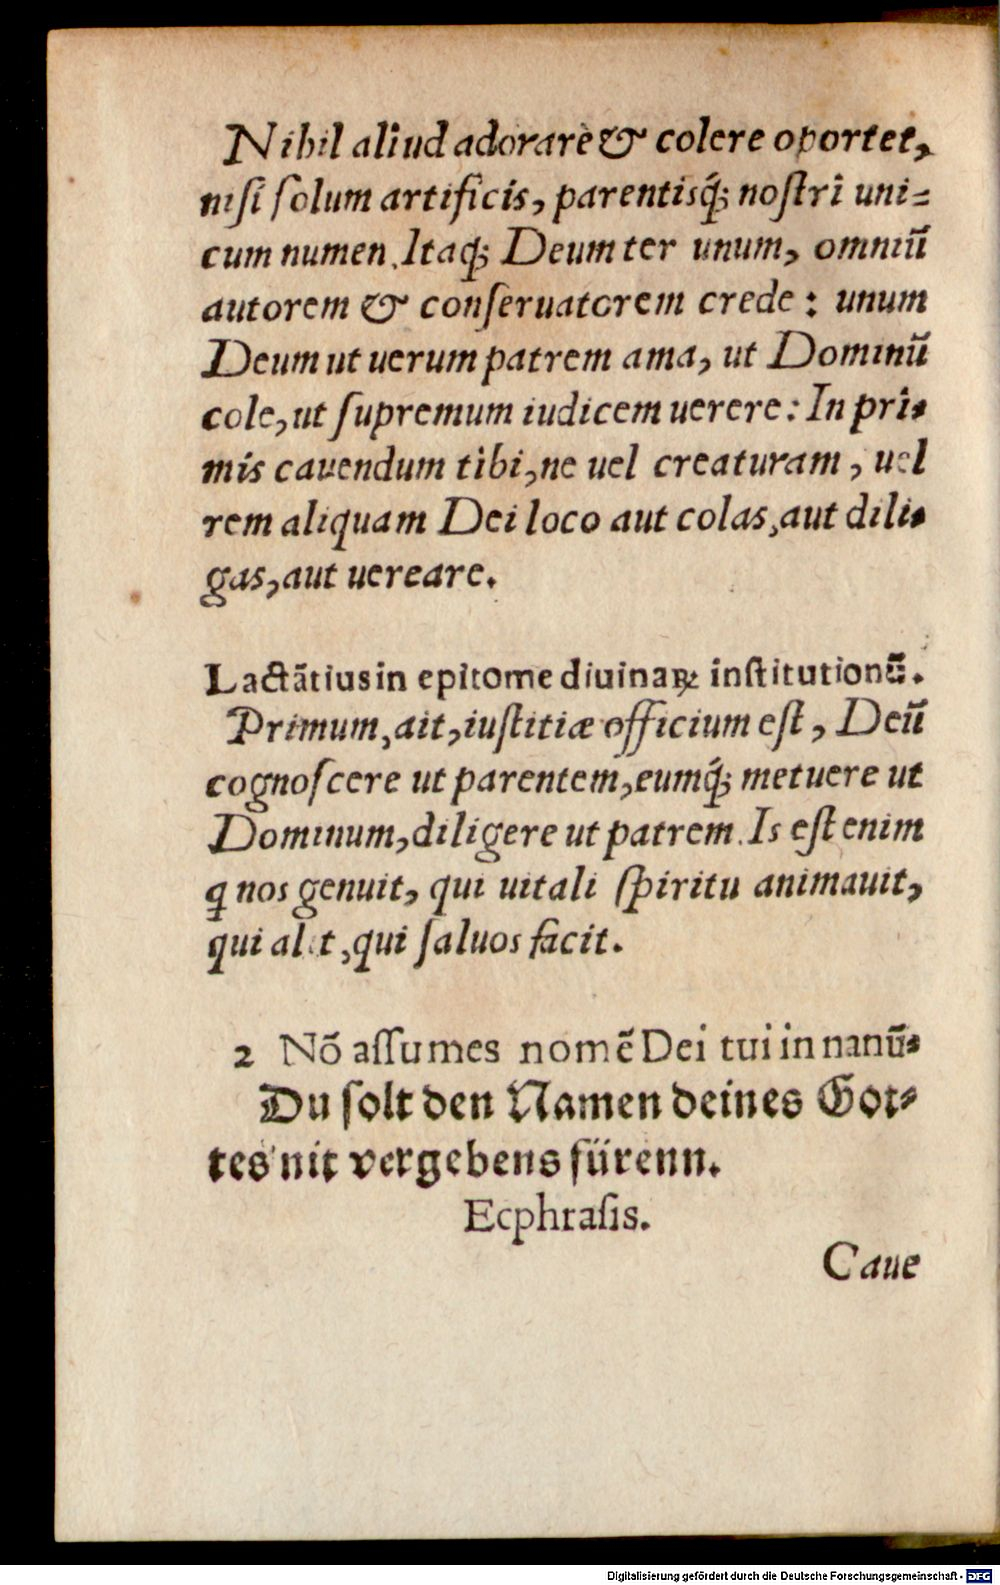 Nihil aliud adorare & colere oportet,
nisi ſolum artificis, parentisq́; noſtri uni=
cum numen. Itaq́; Deum ter unum, omniū
autorem & conſeruatorem crede: unum
Deum ut uerum patrem ama, ut Dominū
cole, ut ſupremum iudicem uerere: In pri-
mis cauendum tibi, ne uel creaturam, uel
rem aliquam Dei loco aut colas, aut dili-
gas, aut uereare.
Lactātius in epitome diuinaꝝ inſtitutionū.
Primum, ait, iuſtitiæ officium eſt, Deū
cognoſcere ut parentem, eumq́; metuere ut
Dominum, diligere ut patrem. Is eſt enim
q nos genuit, qui uitali ſpiritu animauit,
qui alit, qui ſaluos facit.
2 Nō aſſumes nomē Dei tui in nanū.
Du ſolt den Namen deines Got-
tes nit vergebens fürenn.
Ecphraſis.
Caue
Digitalisierung gefördert durch die Deutsche Forschungsgemeinschaft - DFG